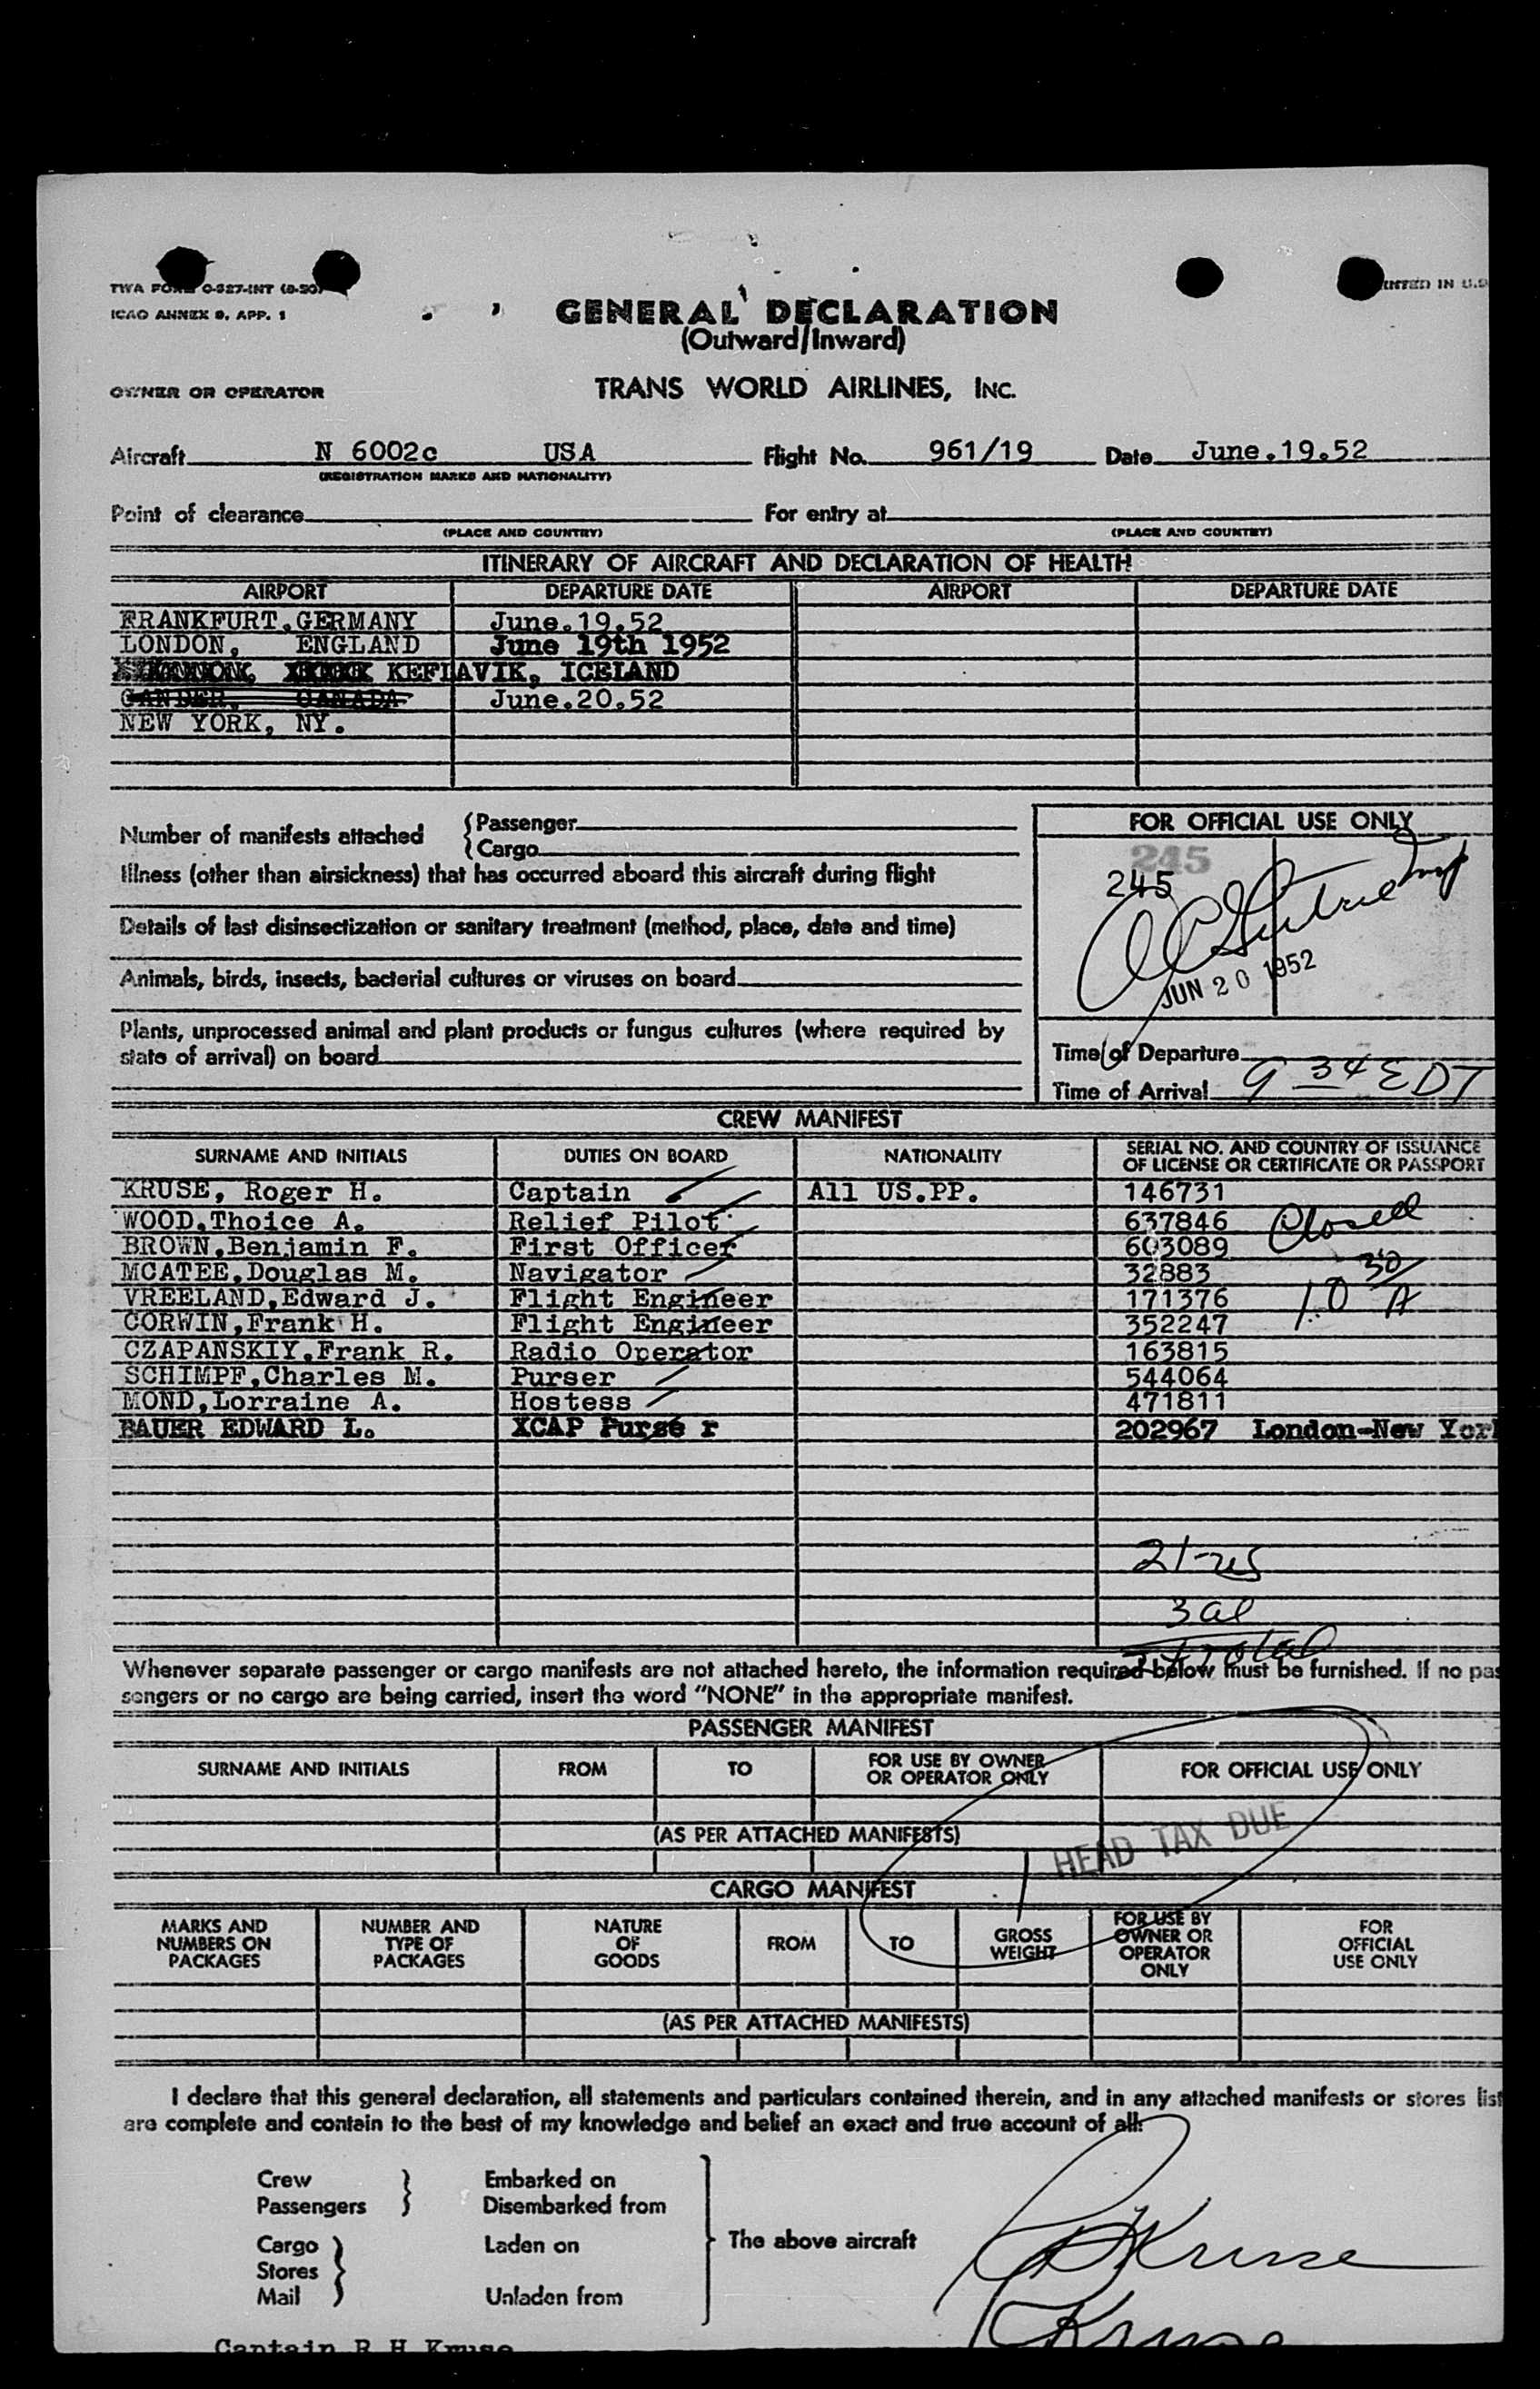 TWA FORM O-927-INT (8-50)
ICAO ANNEX 9, APP. 1
GENERAL DECLARATION
(Outward/Inward)
OWNER OR OPERATOR TRANS WORLD AIRLINES, INC.
Aircraft N 6002c USA Flight No. 961/19 Date June.19.52
(REGISTRATION MARKS AND NATIONALITY)
Point of clearance For entry at
(PLACE AND COUNTRY) (PLACE AND COUNTRY)
ITINERARY OF AIRCRAFT AND DECLARATION OF HEALTH
AIRPORT DEPARTURE DATE AIRPORT DEPARTURE DATE
FRANKFURT.GERMANY June.19.52
LONDON, ENGLAND June 19th 1952
KEFLAVIK, ICELAND
GANDER, CANADA June.20.52
NEW YORK, NY.
Number of manifests attached {Passenger
{Cargo
Illness (other than airsickness) that has occurred aboard this aircraft during flight
Details of last disinsectization or sanitary treatment (method, place, date and time)
Animals, birds, insects, bacterial cultures or viruses on board
Plants, unprocessed animal and plant products or fungus cultures (where required by
state of arrival) on board
FOR OFFICIAL USE ONLY
245
245
JUN 20 1952
Time of Departure
Time of Arrival 9 34 EDT
CREW MANIFEST
SURNAME AND INITIALS DUTIES ON BOARD NATIONALITY SERIAL NO. AND COUNTRY OF ISSUANCE
OF LICENSE OR CERTIFICATE OR PASSPORT
KRUSE, Roger H. Captain All US.PP. 146731
WOOD.Thoice A. Relief Pilot 637846 Closed
BROWN,Benjamin F. First Officer 603089
MCATEE,Douglas M. Navigator 32883
VREELAND,Edward J. Flight Engineer 171376 10 30 A
CORWIN,Frank H. Flight Engineer 352247
CZAPANSKIY.Frank R. Radio Operator 163815
SCHIMPF,Charles M. Purser 544064
MOND,Lorraine A. Hostess 471811
BAUER EDWARD L. XCAP Purse r 202967 London-New York
21-us
3 al
total
Whenever separate passenger or cargo manifests are not attached hereto, the information required below must be furnished. If no pas
sengers or no cargo are being carried, insert the word "NONE" in the appropriate manifest.
PASSENGER MANIFEST
SURNAME AND INITIALS FROM TO FOR USE BY OWNER
OR OPERATOR ONLY FOR OFFICIAL USE ONLY
(AS PER ATTACHED MANIFESTS)
1 HEAD TAX DUE
CARGO MANIFEST
MARKS AND
NUMBERS ON
PACKAGES
NUMBER AND
TYPE OF
PACKAGES
NATURE
OF
GOODS
FROM
TO
GROSS
WEIGHT
FOR USE BY
OWNER OR
OPERATOR
ONLY
FOR
OFFICIAL
USE ONLY
(AS PER ATTACHED MANIFESTS)
I declare that this general declaration, all statements and particulars contained therein, and in any attached manifests or stores list
are complete and contain to the best of my knowledge and belief an exact and true account of all:
Crew } Embarked on
Passengers } Disembarked from
Cargo } Laden on The above aircraft
Stores }
Mail } Unladen from
Kruse
Kruse
Captain R H Kruse